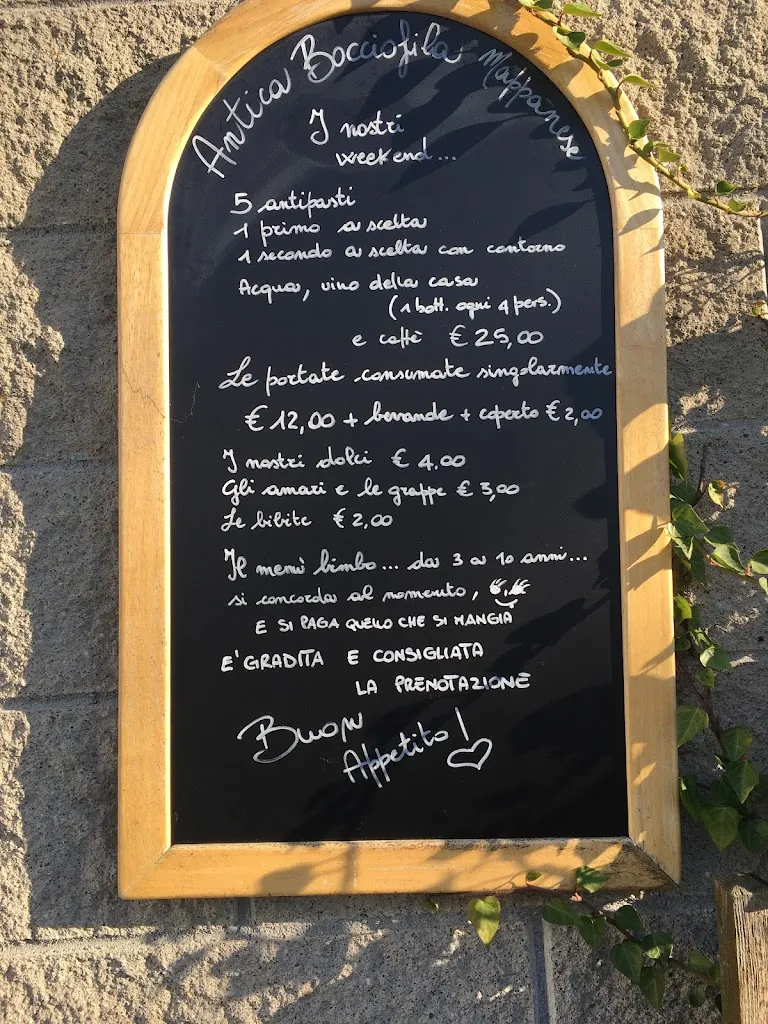 Antica Bocciofila Mappanese
I nostri
weekend...
5 antipasti
1 primo a scelta
1 secondo a scelta con contorno
Acqua, vino della casa
(1 bott. ogni 4 pers.)
e caffè € 25,00
Le portate consumate singolarmente
€ 12,00 + bevande + coperto € 2,00
I nostri dolci € 4,00
Gli amari e le grappe € 3,00
Le bibite € 2,00
Il menù bimbo... da 3 a 10 anni...
si concorda al momento,
E SI PAGA QUELLO CHE SI MANGIA
E' GRADITA E CONSIGLIATA
LA PRENOTAZIONE
Buon
Appetito!